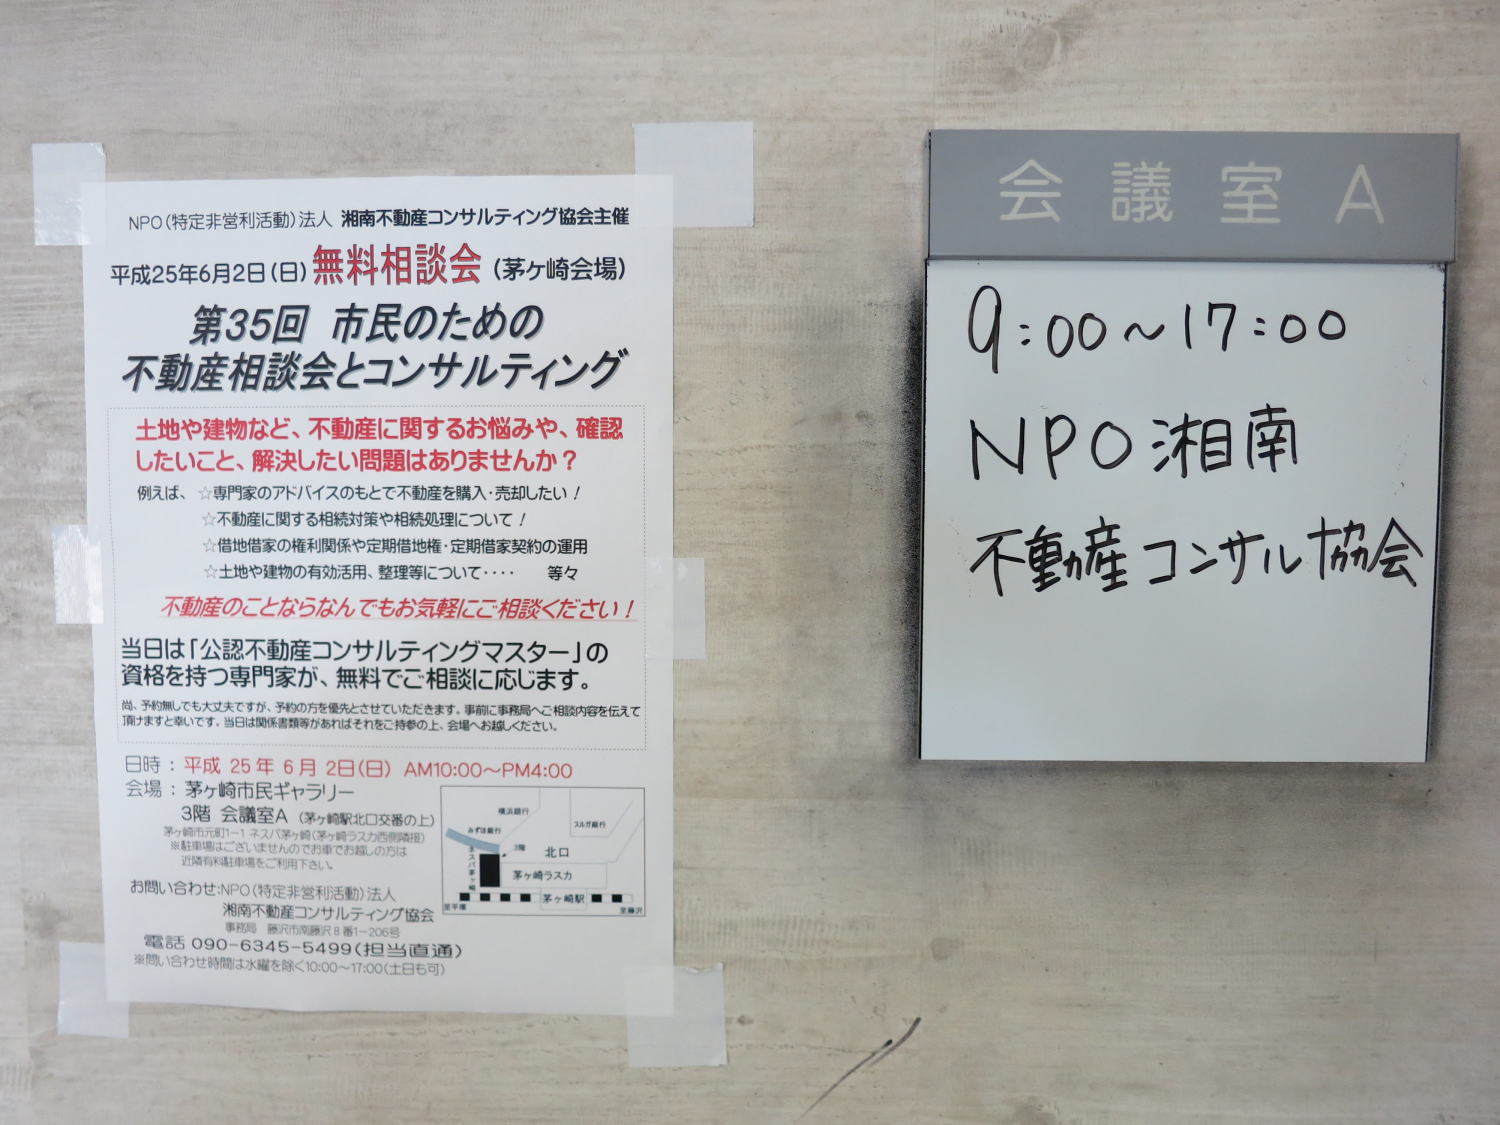 NPO(特定非営利活動)法人 湘南不動産コンサルティング協会主催
平成25年6月2日(日)無料相談会(茅ヶ崎会場)
第35回 市民のための
不動産相談会とコンサルティング
土地や建物など、不動産に関するお悩みや、確認
したいこと、解決したい問題はありませんか?
例えば、☆専門家のアドバイスのもとで不動産を購入・売却したい!
☆不動産に関する相続対策や相続処理について!
☆借地借家の権利関係や定期借地権・定期借家契約の運用
☆土地や建物の有効活用、整理等について・・・・ 等々
不動産のことならなんでもお気軽にご相談ください!
当日は「公認不動産コンサルティングマスター」の
資格を持つ専門家が、無料でご相談に応じます。
尚、予約無しでも大丈夫ですが、予約の方を優先とさせていただきます。事前に事務局へご相談内容を伝えて
頂けますと幸いです。当日は関係書類等があればそれをご持参の上、会場へお越しください。
日時:平成 25年 6月 2日(日) AM10:00~PM4:00
会場:茅ヶ崎市民ギャラリー
3階 会議室A (茅ヶ崎駅北口交番の上)
茅ヶ崎市元町1-1 ネスパ茅ヶ崎(茅ヶ崎ラスカ西側隣接)
※駐車場はございませんのでお車でお越しの方は
近隣有料駐車場をご利用下さい。
お問い合わせ:NPO(特定非営利活動)法人
湘南不動産コンサルティング協会
事務局 藤沢市南藤沢8番1-206号
電話 090-6345-5499(担当直通)
※問い合わせ時間は水曜を除く10:00~17:00(土日も可)
横浜銀行
スルガ銀行
みずほ銀行
3階
北口
ネスパ茅ヶ崎
茅ヶ崎ラスカ
茅ヶ崎駅
至平塚
至藤沢
会議室A
9:00~17:00
NPO湘南
不動産コンサル協会